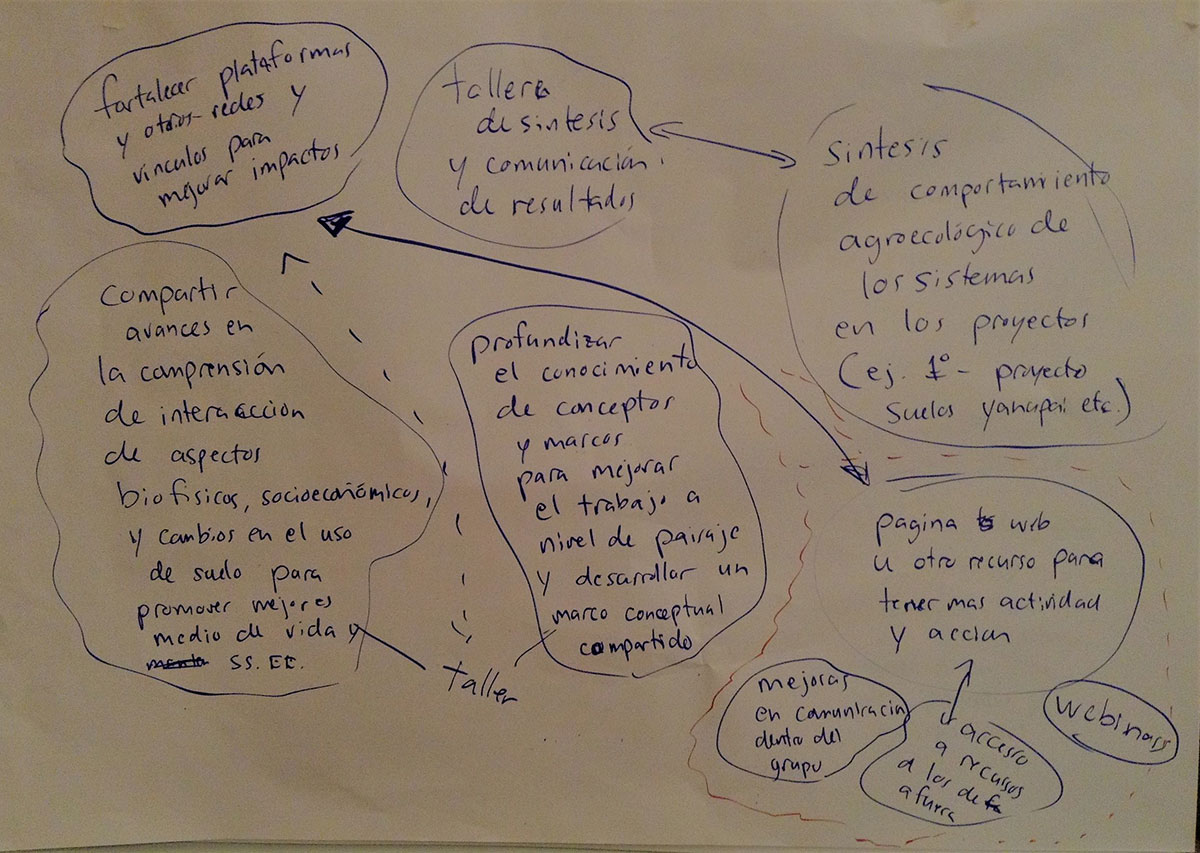 fortalecer plataformas
y otros redes y
vinculos para
mejorar impactos
tallere
de sintesis
y comunicación
de resultados
sintesis
de comportamiento
agroecológico de
los sistemas
en los proyectos
(ej. 1º - proyecto
suelos yanapai etc.)
compartir
avances en
la comprensión
de interacción
de aspectos
biofisicos, socioeconómicos,
y cambios en el uso
de suelo para
promover mejores
medio de vida y
SS. EE.
profundizar
el conocimiento
de conceptos
y marcos
para mejorar
el trabajo a
nivel de paisaje
y desarrollar un
marco conceptual
compartido
taller
pagina web
u otro recurso para
tener mas actividad
y accion
mejoras
en comunicacin
dentro del
grupo
accesso
a recursos
a los de
afuera
webinars